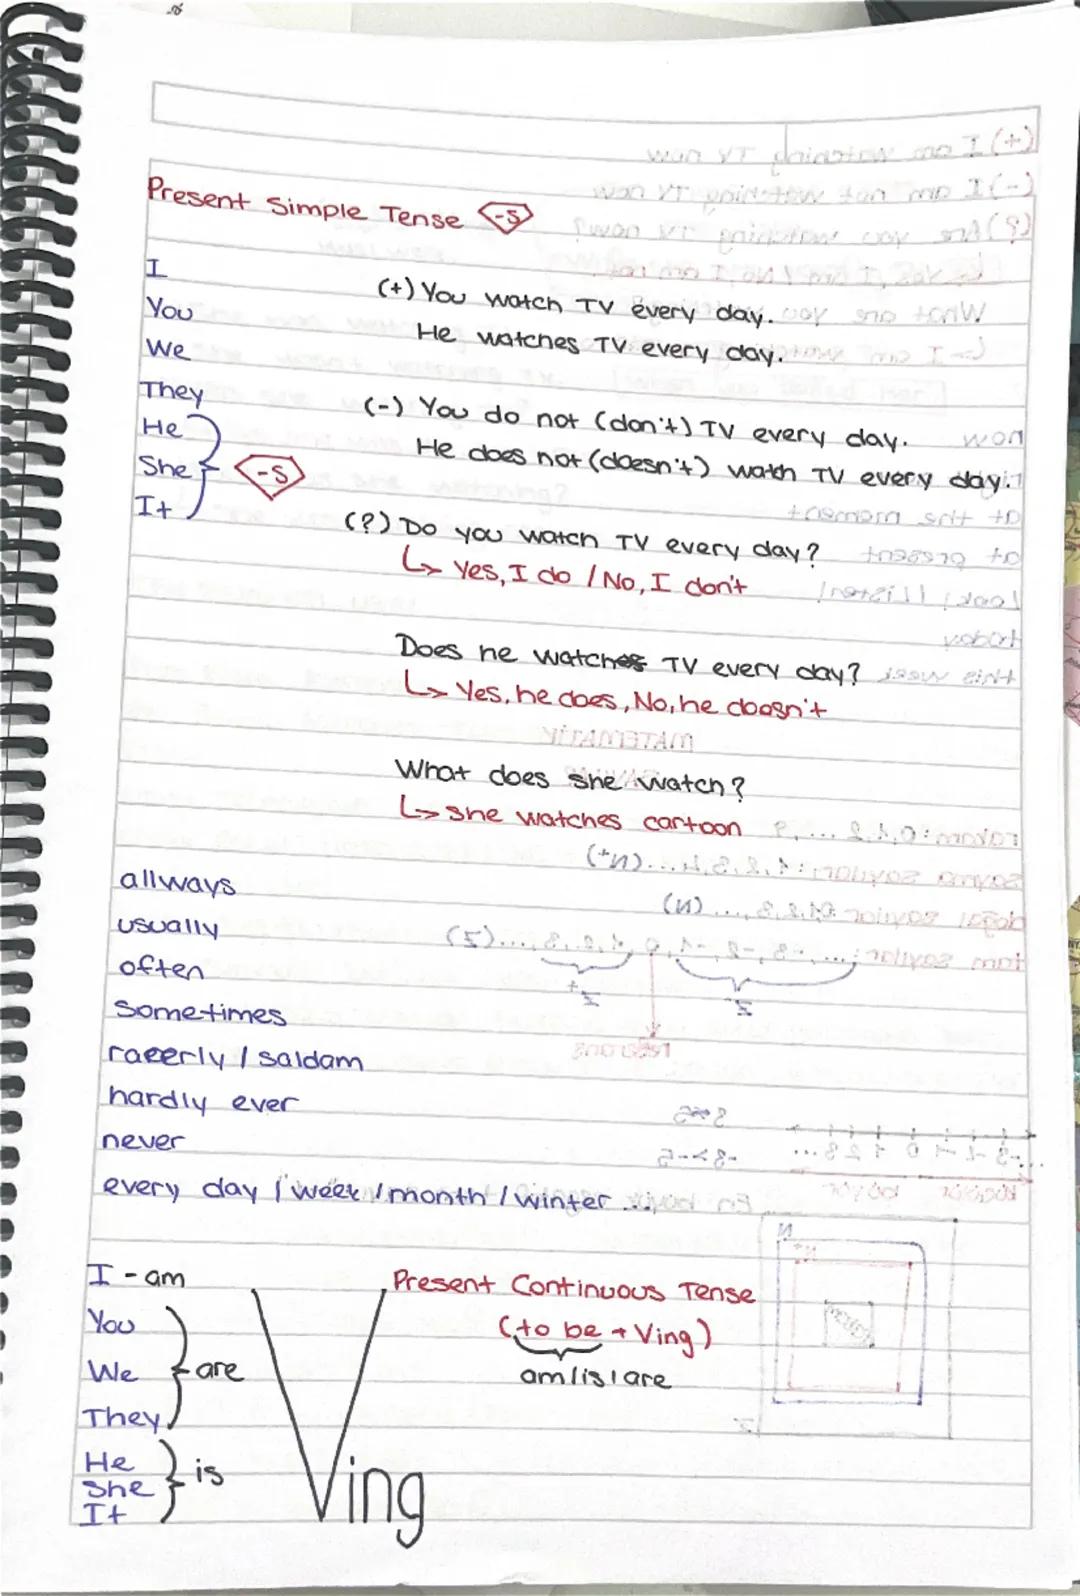 Present Simple Tense -s
I
You
We
They
He
She
It
-s
(+) You watch TV every day.
He watches TV every day.
(-) You do not (don't) TV every day.
He does not (doesn't) watch TV every day.
(?) Do you watch TV every day?
↳ Yes, I do / No, I don't
Does he watches TV every day?
↳ Yes, he does, No, he doesn't
What does she watch?
↳ she watches cartoon
allways
usually
often
sometimes
raeerly / saldam
hardly ever
never
every day / week / month / winter ...
I - am
You
We
They
are
He
She
It
is
Ving
Present Continuous Tense
(to be + Ving)
am / is / are